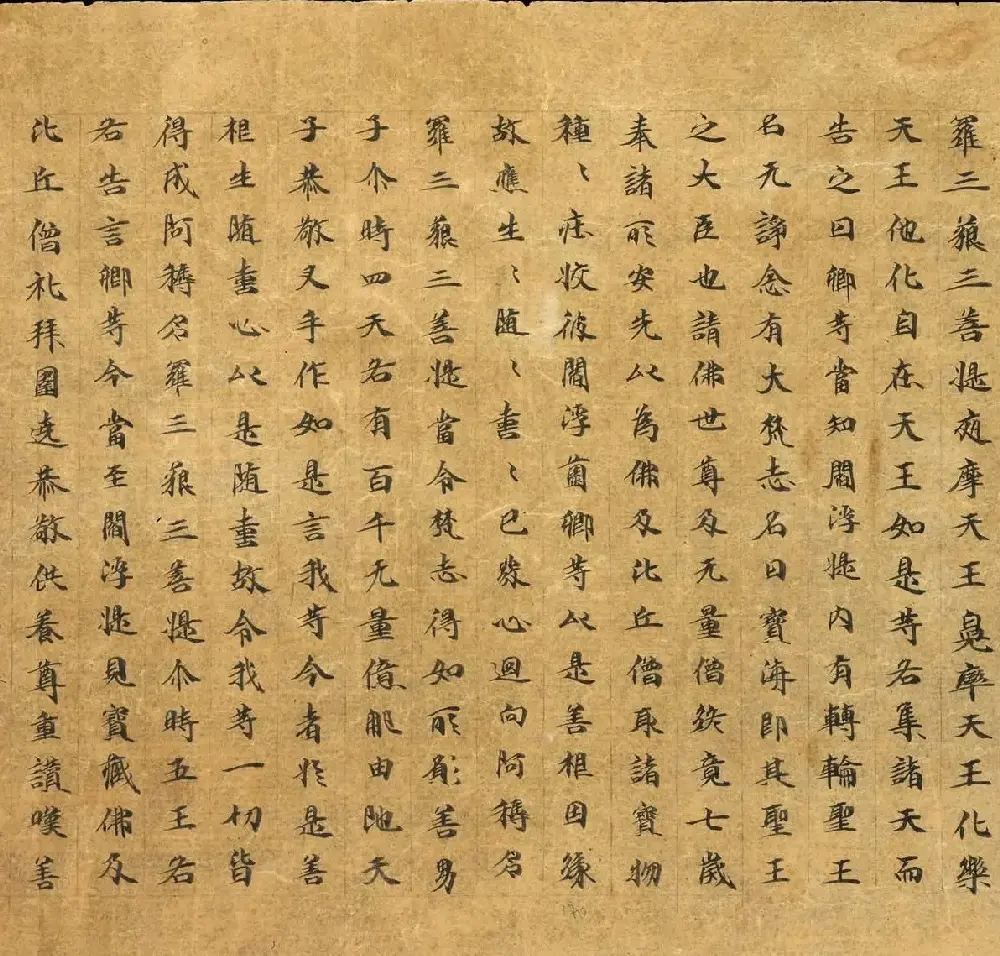 羅三藐三菩提夜摩天王兜率天王化樂
天王他化自在天王如是等各集諸天而
告之曰卿等當知閻浮提内有轉輪聖王
名无諍念有大梵志名曰寶海即其聖王
之大臣也請佛世尊及无量僧終竟七歲
奉諸所安先以為佛及比丘僧取諸寶物
種〻庄挍彼閻浮薗卿等以是善根因緣
故應生〻随〻喜〻已發心迴向阿耨多
羅三藐三菩提當令梵志得如所願善男
子尒時四天各有百千无量億那由他天
子恭敬叉手作如是言我等今者於是善
根生随喜心以是随喜故令我等一切皆
得成阿耨多羅三藐三菩提尒時五王各
各告言卿等今當至閻浮提見寶藏佛及
比丘僧礼拜圍遶恭敬供養尊重讃嘆善